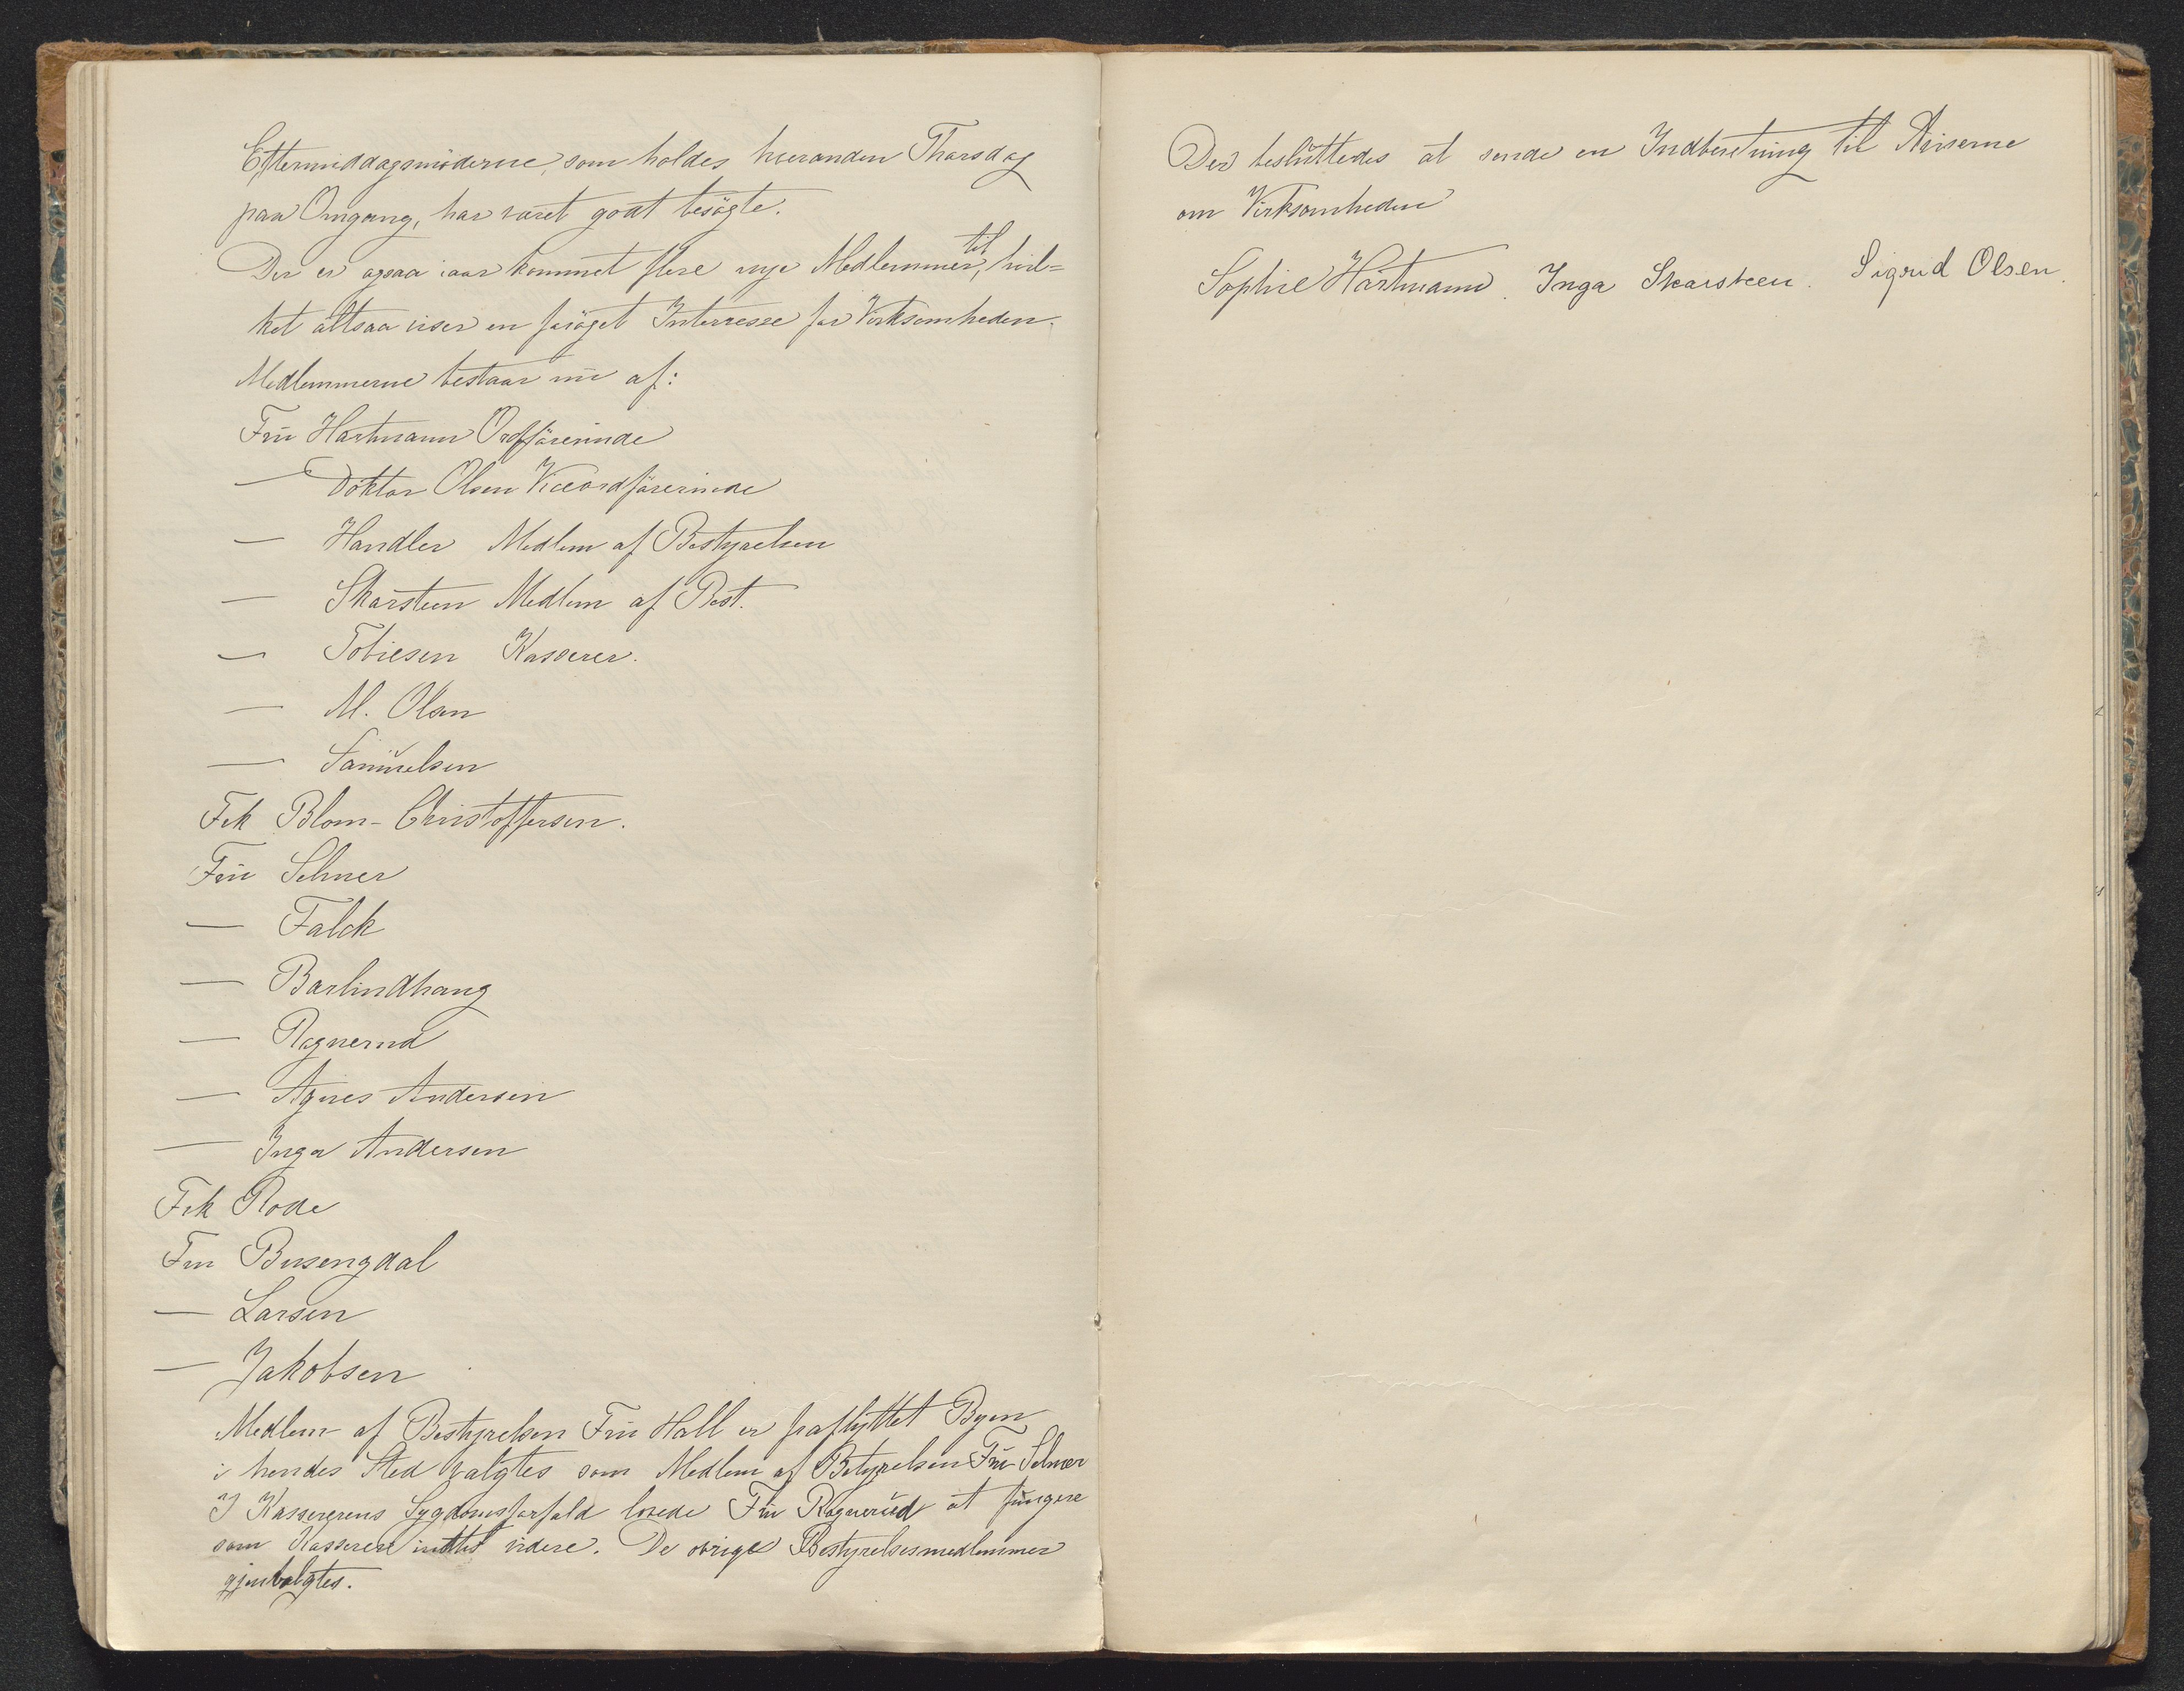 Eftermiddagsmöderne, som holdes hveranden Thorsdag
paa Omgang, har været godt besögte.
Der er ogsaa iaar kommet flere nye Medlemmer til, hvil=
ket altsaa viser en foröget Interresse for Virksomheden.
Medlemmerne bestaar nu af:
Fru Hartmann Ordförerinde
— Doktor Olsen Viceordförerinde
— Handler Medlem af Bestyrelsen
— Skarsteen Medlem af Best.
— Tobiesen Kasserer.
— M. Olsen
— Samuelsen
Frk Blom-Christoffersen.
Fru Selmer
— Falck
— Barlindhaug
— Ragnerud
— Agnes Andersen
— Inga Andersen
Frk Rode
Fru Busengdal
— Larsen
— Jakobsen
Medlem af Bestyrelsen Fru Hall er fraflyttet Byen
i hendes Sted valgtes som Medlem af Betyrelsen Fru Selmer
I Kassererens Sygdomsforfald lovede Fru Ragnerud at fungere
som Kasserer indtil videre. De övrige Bestyrelsesmedlemmer
gjenvalgtes.
Der besluttedes at sende en Indberetning til Aviserne
om Virksomheden
Sophie Hartmann. Inga Skarsteen. Sigrid Olsen.